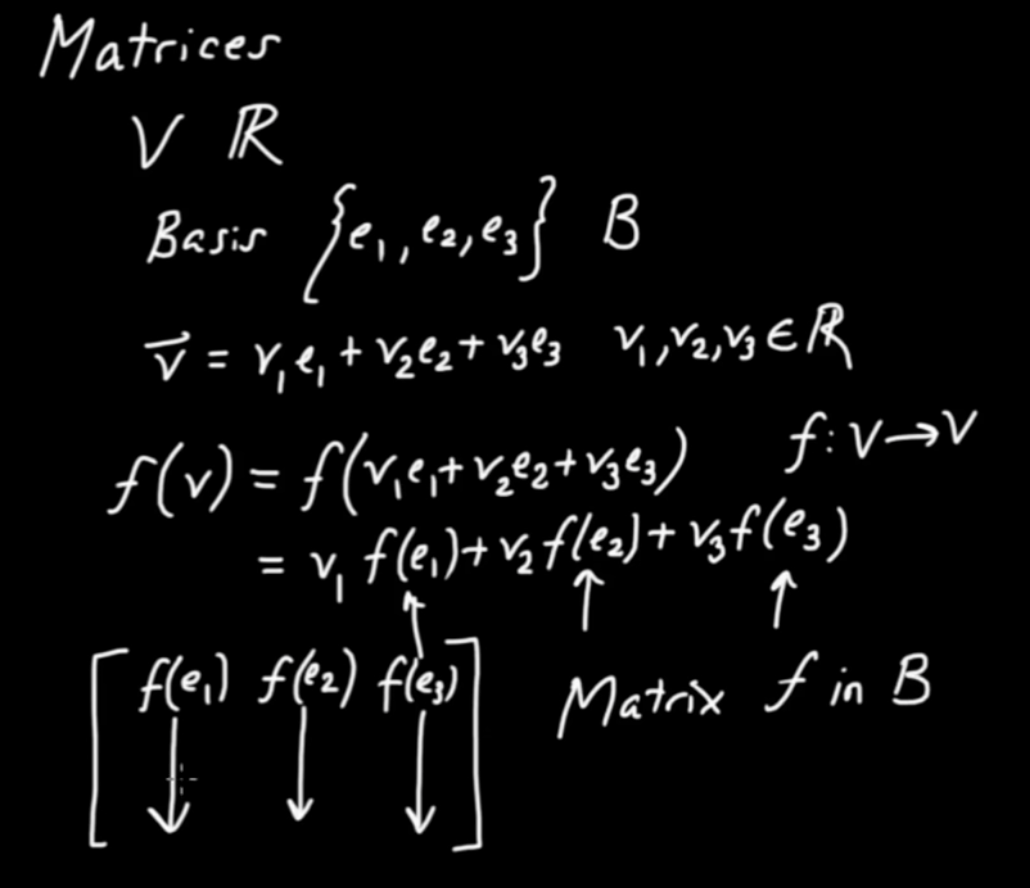 Matrices
V ℝ
Basis {e₁, e₂, e₃} B
v⃗ = v₁e₁ + v₂e₂ + v₃e₃ v₁, v₂, v₃ ∈ ℝ
f(v) = f(v₁e₁ + v₂e₂ + v₃e₃) f: V → V
= v₁ f(e₁) + v₂ f(e₂) + v₃ f(e₃)
[f(e₁) f(e₂) f(e₃)] Matrix f in B